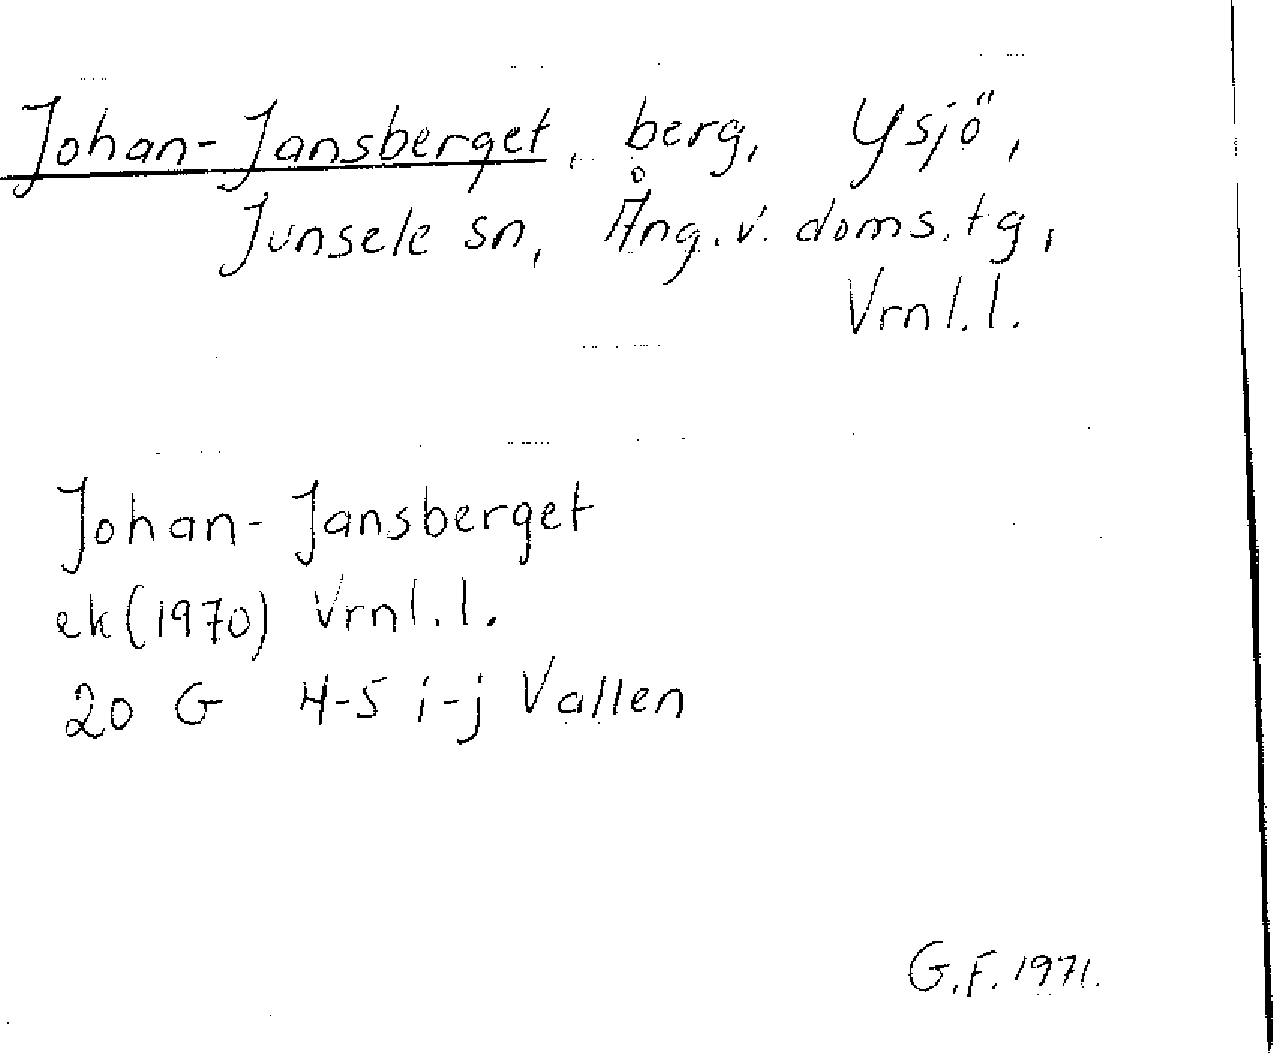 Johan-Jansberget, berg, Ysjö,
Junsele sn, Ång.v. doms.tg,
Vrnl.l.
Johan-Jansberget
ek(1970) Vrnl.l.
20 G 4-5 i-j Vallen
G.F. 1971.